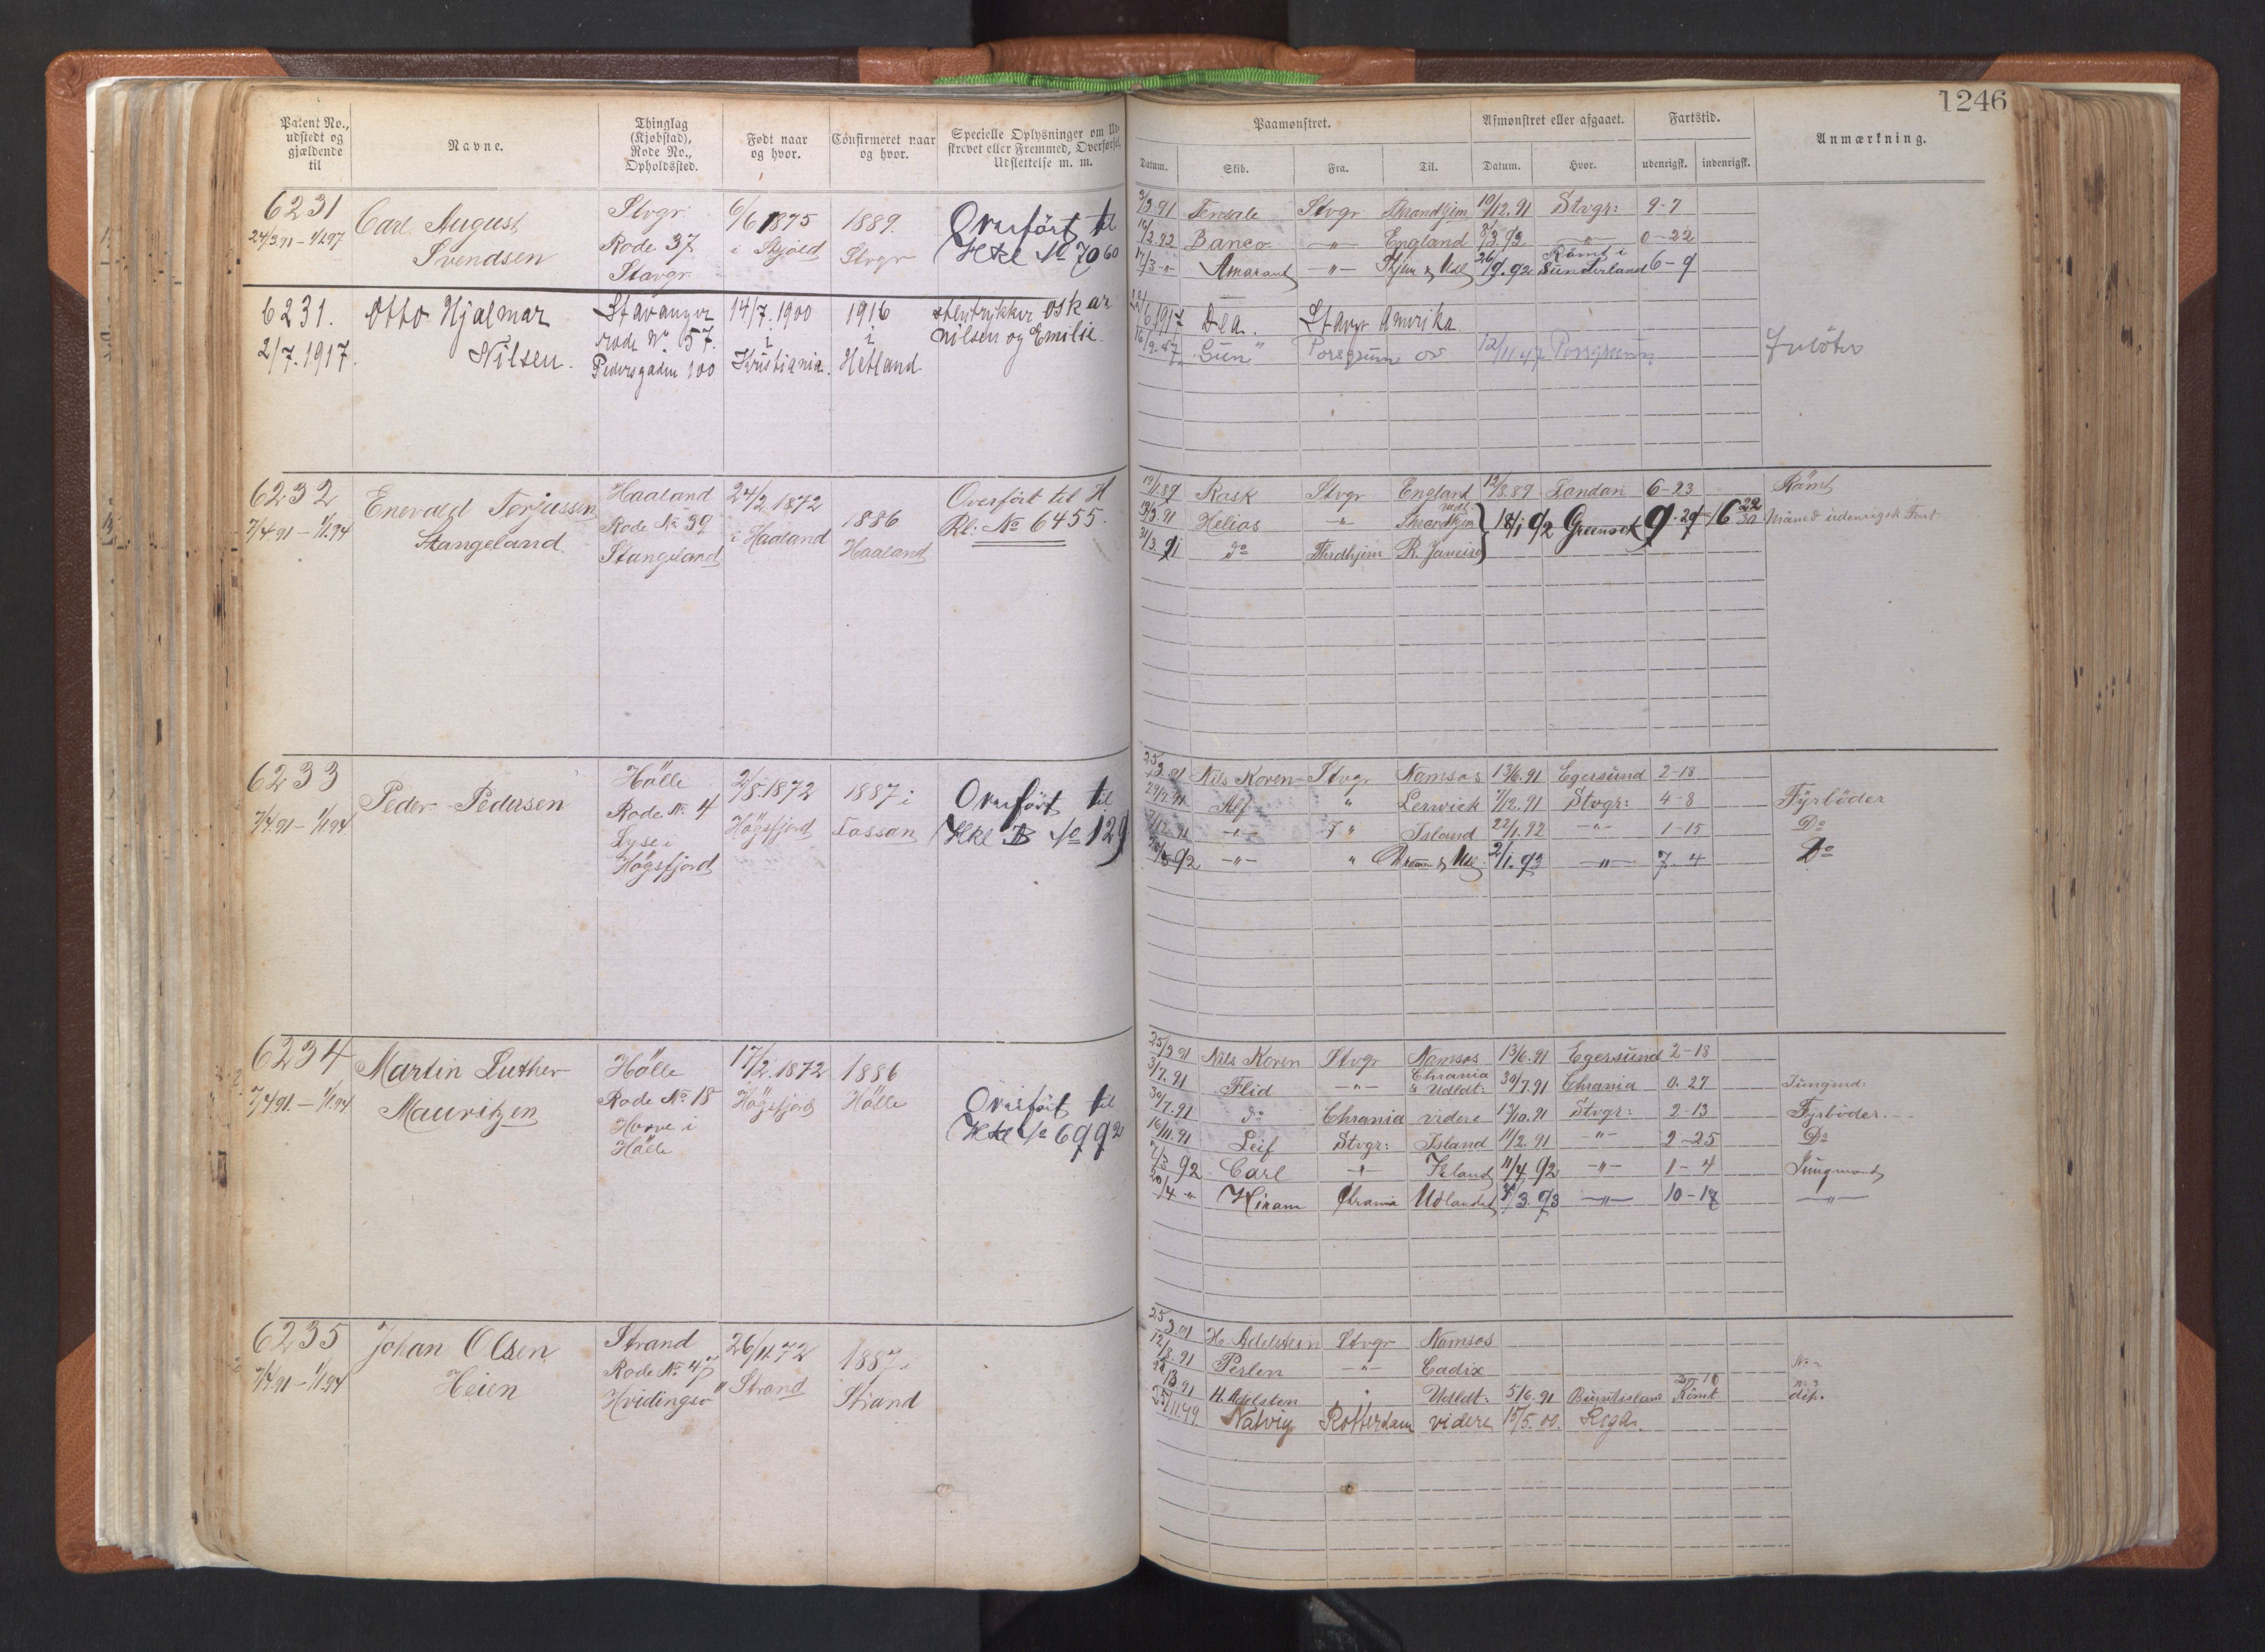 1246
Patent No., udstedt og gjældende til
Navne.
Thinglag (Kjøbstad), Rode No., Opholdssted.
Født naar og hvor.
Confirmeret naar og hvor.
Specielle Oplysninger om Ud-
skrevet eller Fremmed, Overførsel,
Udslettelse m. m.
Paamønstret.
Afmønstret eller afgaaet.
Fartstid.
Anmærkning.
Datum. Skib. Fra. Til. Datum. Hvor. udenrigsk. indenrigsk.
6231
24/3 91 – 1/1 97
Carl August
Svendsen
Stvgr
Rode 37
Stavgr
6/6 1875
i Skjold
1889.
Stvgr
Overført til
Hkl No 7060
2/3.91 Fensale Stvgr Thrandhjem 10/12.91 Stvgr: 9-7
16/2.92 Banco -"- England 8/3.92 -"- 0-22
17/3 -"- Amarant -"- Thjem & Udl 26/9.92 Rømt i Sunderland 6-9
6231.
2/7.1917.
Otto Hjalmar
Nilsen.
Stavanger
rode No 57.
Pedersgaden 100
14/7.1900
i
Kristiania.
1916
i
Hetland
stentrykker Oskar
Nilsen og Emilie.
/6 1917 Dea. Stavgr Amerika
16/9.47 "Gun" Porsgrunn os 12/11 47 Porsgrunn
6232
7/4 91 – 1/1.94
Enevald Torjussen
Stangeland
Haaland
Rode No 39
Stangeland
24/2 1872
i Haaland
1886
Haaland
Overført til H
Rl: No 6455.
Rask Stvgr England 12/8.89 Landan 6-23 Rømt
19/3.91 Helios " Thrandhjem 18/1 92 Greenock 9-29 6 22/30 Maaned udenrigsk Fart
31/3.91 do Thrdhjem R. Janeiro
6233
7/4.91 – 1/1 94
Peder Pedersen
Hölle
Rode No. 4
Lyse i
Högsfjord
2/8 1872
Högsfjord
1887 i
Fossan
Overført til
Hkl B No 129
25/3.91 Nils Koren Stvgr Namsos 13/6.91 Egersund 2-18
Alf " Lerwick 7/12.91 Stvgr: 4-8 Fyrböder
-"- " Island 22/1.92 -"- 1-15 Do
-"- " & Udl. 2/1.93 -"- 7-4 Do
6234
7/4 91. – 1/1.94
Martin Luther
Mauritzen
Hölle
Rode No 18
Horve i
Hölle
17/2.1872
Högsfjord
1886
Hölle
Overført til
Hkl No 6992
25/3 91 Nils Koren Stvgr Namsos 13/6.91 Egersund 2-18
3/7.91 Flid -"- Chrania & Udldt: 30/7.91 Chrania 0.27 Jungmd:
30/7.91 do Chrania videre 13/10.91 Stvgr: 2-13 Fyrböder.
16/11.91 Leif Stvgr: Island 11/2.91 -"- 2-25 Do
7/3 92 Carl -"- Island 11/4 92 -"- 1-4 Jungmand
20/4 -"- Hiram Chrania Udlandet 7/3.93 -"- 10-17 -"-
6235
7/4 91 – 1/1.94
Johan Olsen
Heien
Strand
Rode No 47
Hvidingsø
26/11.72
" Strand
1887.
Strand
25/3.91 H. Adelsteen Stvgr Namsos
12/8.91 Perlen -"- Cadix
H. Adelsten " Udldt: 5/6.91 Burntisland Rømt
25/11.99 Natvig Rotterdam videre 15/5.00.